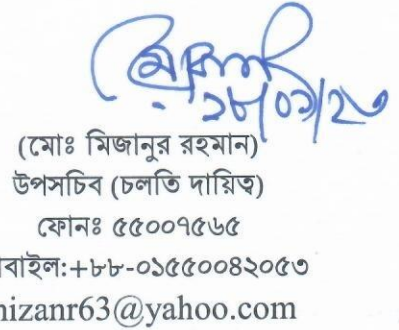 ১৮/০১/২৩
(মোঃ মিজানুর রহমান)
উপসচিব (চলতি দায়িত্ব)
ফোনঃ ৫৫০০৭৫৬৫
বাইল:+৮৮-০১৫৫০০৪২০৫৩
nizanr63@yahoo.com